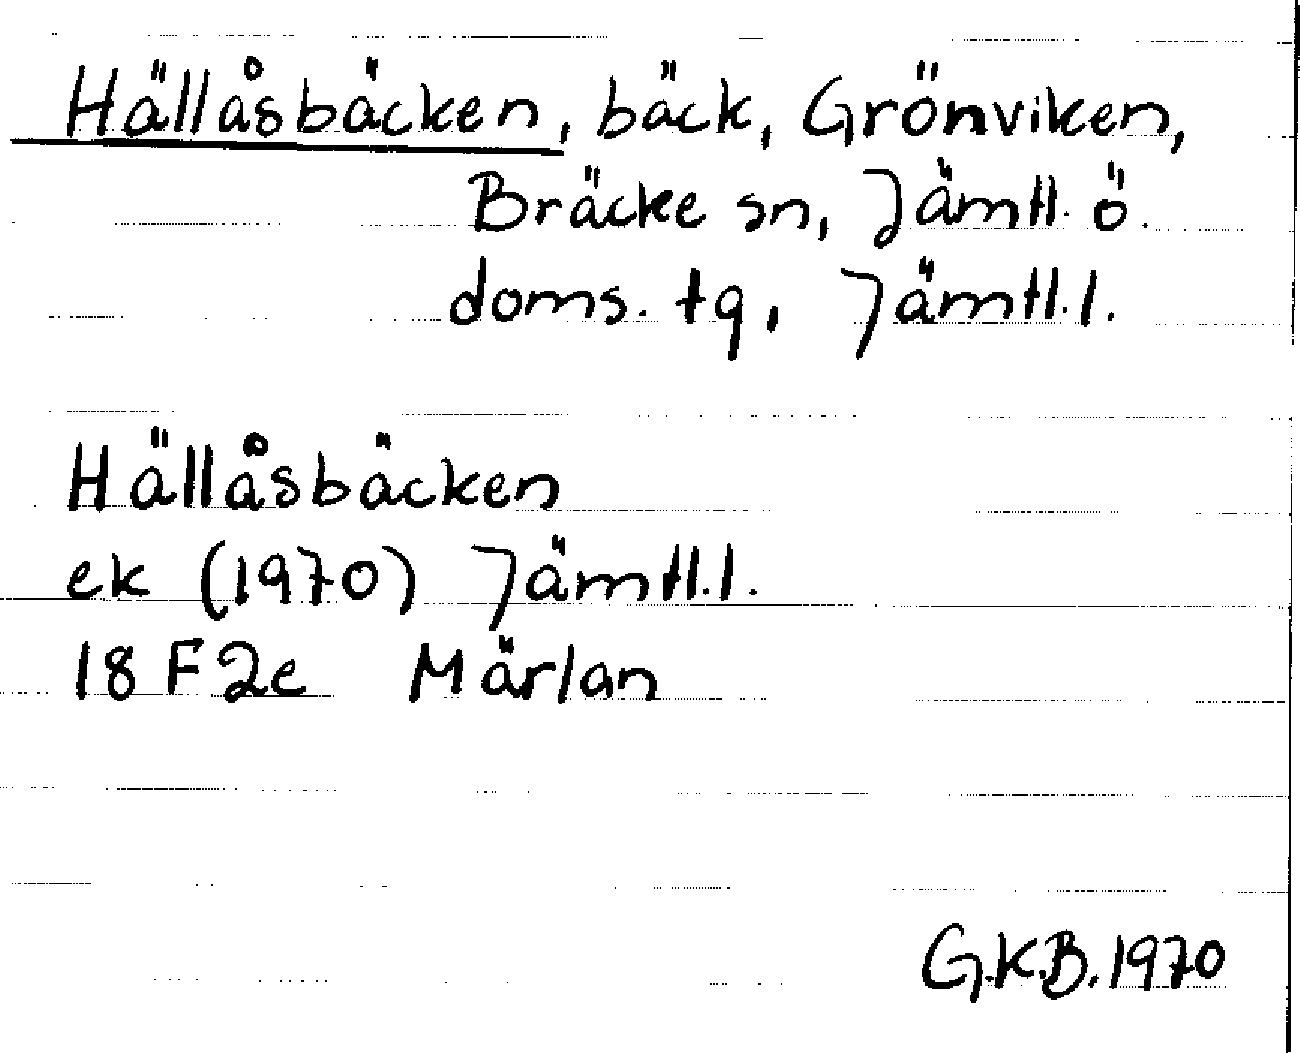 Hällåsbäcken, bäck, Grönviken,
Bräcke sn, Jämtl. ö.
doms. tg, Jämtl. l.
Hällåsbäcken
ek (1970) Jämtl. l.
18 F 2c Märlan
G.K.B. 1970